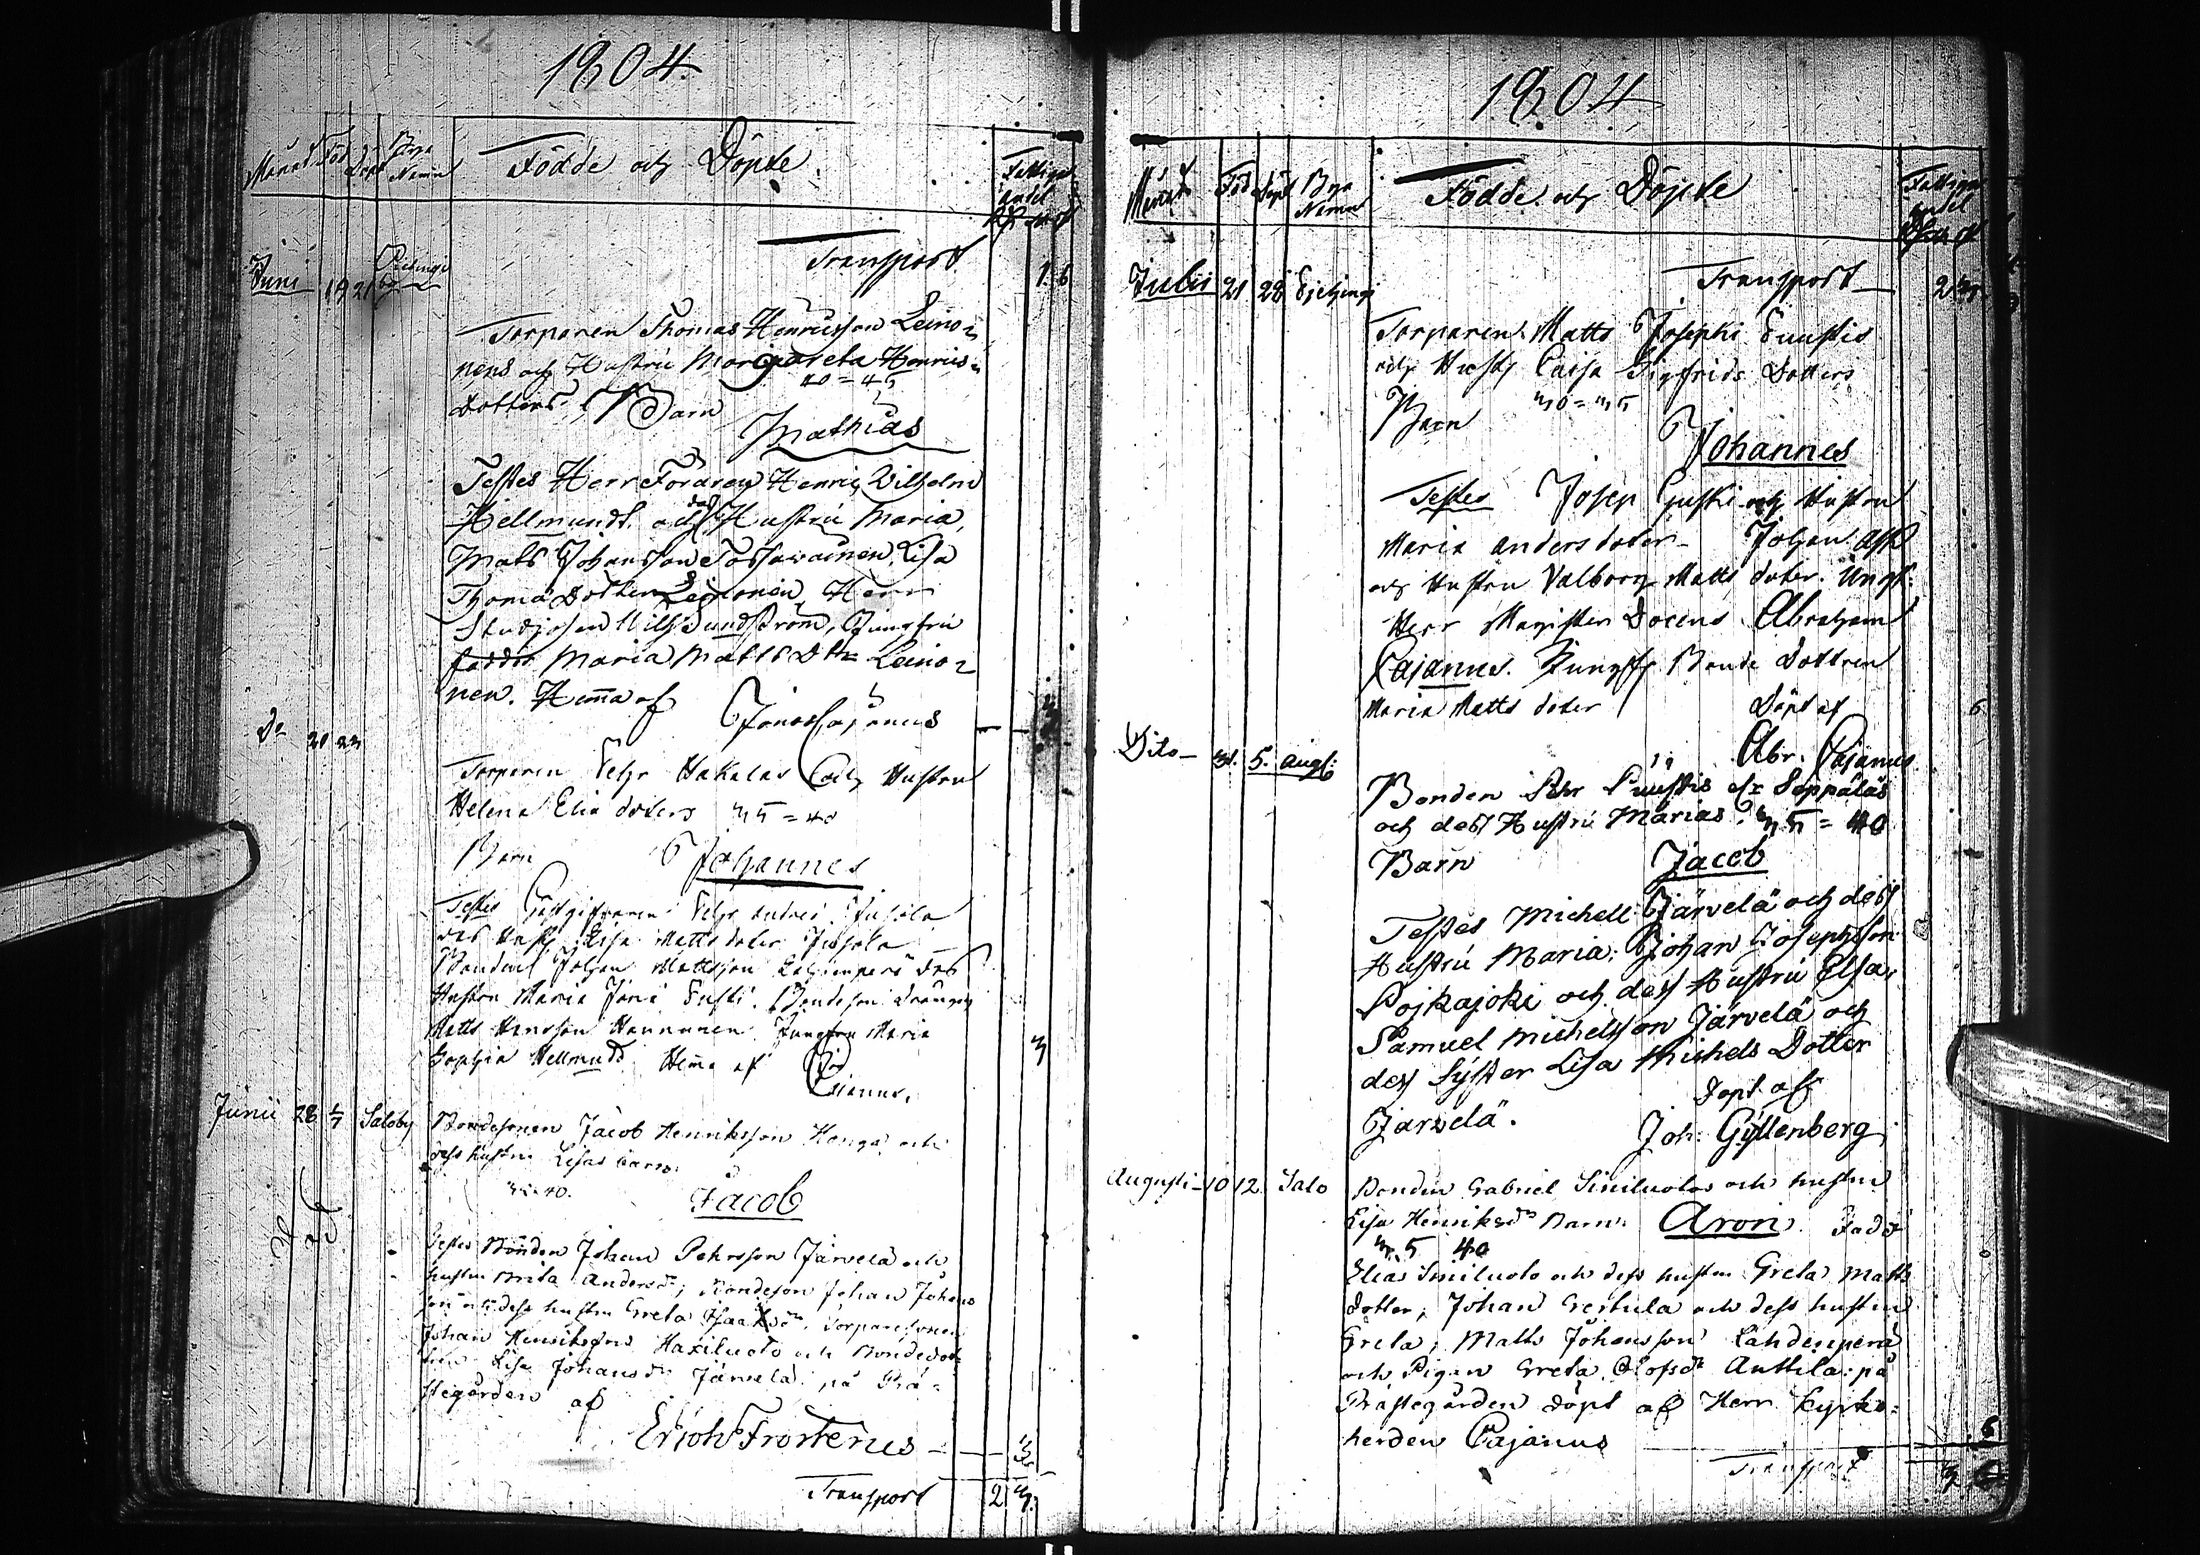 1804.
Månad Föd Döpt Bya Namn
Födde och Döpte
Fattiga andel
Transport 1. 6
Juni 19 21
Torparen Thomas Henricsson Leino-
nens och Hustru Margareta Henrics
40=45
Dotters Barn
Mathias
Testes Herr Henric Wilhelm
Hellmundt och dess Hustru Maria,
Mats Johansson Lisa
Thomæ Dotter Leinonen, Herr
Sundström, Jungfru
Maria Matts Dtr Leino-
nen. Hema af
Jonas Cajanus
Do 21 23
Torparen Pehr Hakalas och Hustru
Helena Elia doters 35=40
Barn Johannes
Testes Gästgifvaren Pehr Jussola
dess Hust. Lisa Matts doter Jussola
Bonden Johan Mattsson dess
Hustru Maria Bondeson drängen
Matts Hansson Jungfru Maria
Sophia Hellmundt Hema af
Cajanus.
Junii 28 1/7 Saloby
Bondesonen Jacob Henriksson och
dess hustru Lisas barn
35=40.
Jacob
Testes Bonden Johan Pehrsson Järvelä och
hustru Brita Andersdr, Bondeson Johan Johans
son och dess hustru Greta Isaksdr. Torparesonen
Johan Henriksson Haxiluoto och Bondedot-
tren Lisa Johansdr Järvelä. på Prä-
stegården af
Erich Frosterus 3
Transport 2 3.
1804
Månad Föd Döpt Bya Namn
Födde och Döpte
Fattiga andel
Julii 21 28
Transport
Torparen Matts Josephs
och Hust. Caisa Sigfrids Dotters
Barn 30=35
Johannes
Testes Josep och Hustru
Maria Anders doter Johan
och Hustru Valborg Matts doter. Ungk.
Herr Magister Docens Abraham
Cajanus. Jungf. Bonde Dottren
Maria Matts doter Döpt af 6
Abr. Cajanus
Dito 31. 5. Aug:
Bonden Pehr Puustis el. Seppäläs
och dess Hustru Marias. 35=40
Barn Jacob
Testes Michell Järvelä och dess
Hustru Maria: Johan Josephsson
Pojkajoki och dess Hustru Elsa,
Samuel Michelsson Järvelä och
dess Syster Lisa Michels Dotter
Järvelä. Döpt af
Joh: Gyllenberg
Augusti 10 12 Salo
Bonden Gabriel Siniluotos och hustru
Lisa Henriksdr Barn Aron. Fadd
35 40
Elias Siniluoto och dess hustru Greta Matts
dotter; Johan och dess hustru
Greta; Matts Johansson Lahdenperä
och Pigan Greta Olofsdr Anttila: på
Prästegården döpt af Herr Kyrko-
herden Cajanus 6
Transport